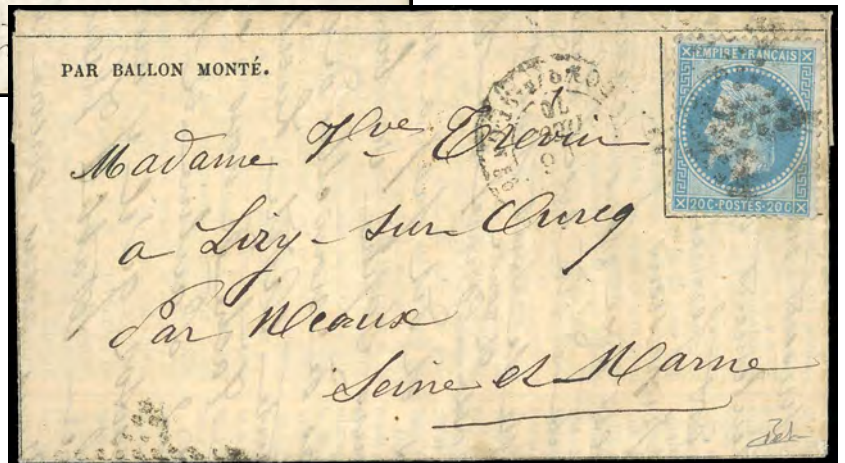 PAR BALLON MONTÉ.
EMPIRE FRANÇAIS
20C·POSTES·20C
Madame Vve
a Lizy-sur Ourcq
Par Meaux
Seine et Marne